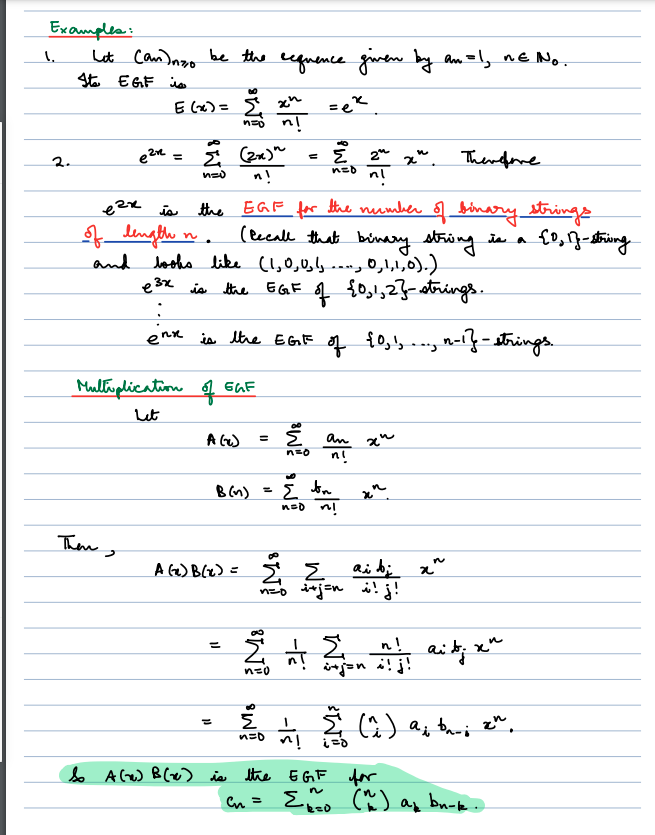 Examples:
1. Let (an)n≥0 be the sequence given by an = 1, n ∈ N₀.
Its EGF is
E(x) = ∑_{n=0}^{∞} xⁿ/n! = eˣ.
2. e²ˣ = ∑_{n=0}^{∞} (2x)ⁿ/n! = ∑_{n=0}^{∞} 2ⁿ/n! xⁿ. Therefore
e²ˣ is the EGF for the number of binary strings
of length n. (Recall that binary string is a {0,1}-string
and looks like (1,0,0,1, ...., 0,1,1,0).)
e³ˣ is the EGF of {0,1,2}-strings.
⋮
eⁿˣ is the EGF of {0,1, ..., n-1}-strings.
Multiplication of EGF
Let
A(x) = ∑_{n=0}^{∞} an/n! xⁿ
B(x) = ∑_{n=0}^{∞} bn/n! xⁿ.
Then,
A(x)B(x) = ∑_{n=0}^{∞} ∑_{i+j=n} ai bj/i! j! xⁿ
= ∑_{n=0}^{∞} 1/n! ∑_{i+j=n} n!/i! j! ai bj xⁿ
= ∑_{n=0}^{∞} 1/n! ∑_{i=0}^{n} (n i) ai bn-i xⁿ.
So A(x) B(x) is the EGF for
cn = ∑_{k=0}^{n} (n k) ak bn-k.